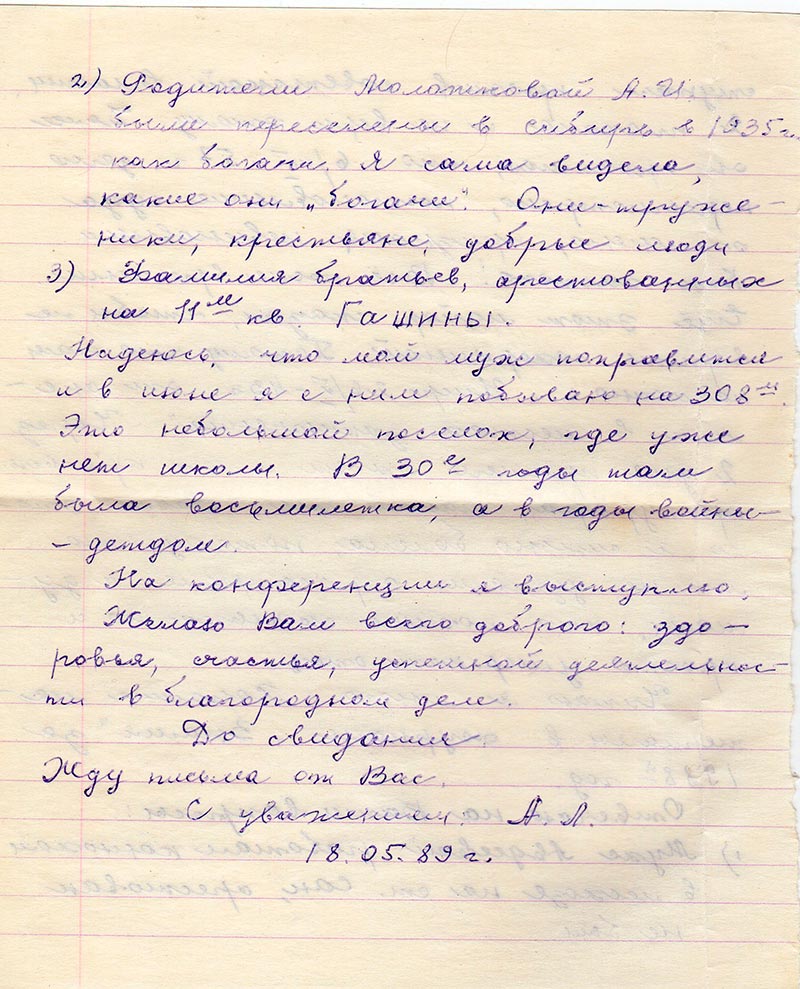 2) Родители Молотковой А.И.
были переселены в сибирь в 1935г.
как богачи. Я сама видела,
какие они „богачи". Они-труже-
ники, крестьяне, добрые люди
3) Фамилия братьев, арестованных
на 11м кв. ГАШИНЫ.
Надеюсь, что мой муж поправится
и в июне я с ним побываю на 308м.
Это небольшой поселок, где уже
нет школы. В 30е годы там
была восьмилетка, а в годы войны-
- детдом.
На конференции я выступлю.
Желаю Вам всего доброго: здо-
ровья, счастья, успешной деятельнос-
ти в благородном деле.
До свидания.
Жду письма от Вас.
С уважением А.Л.
18.05.89г.